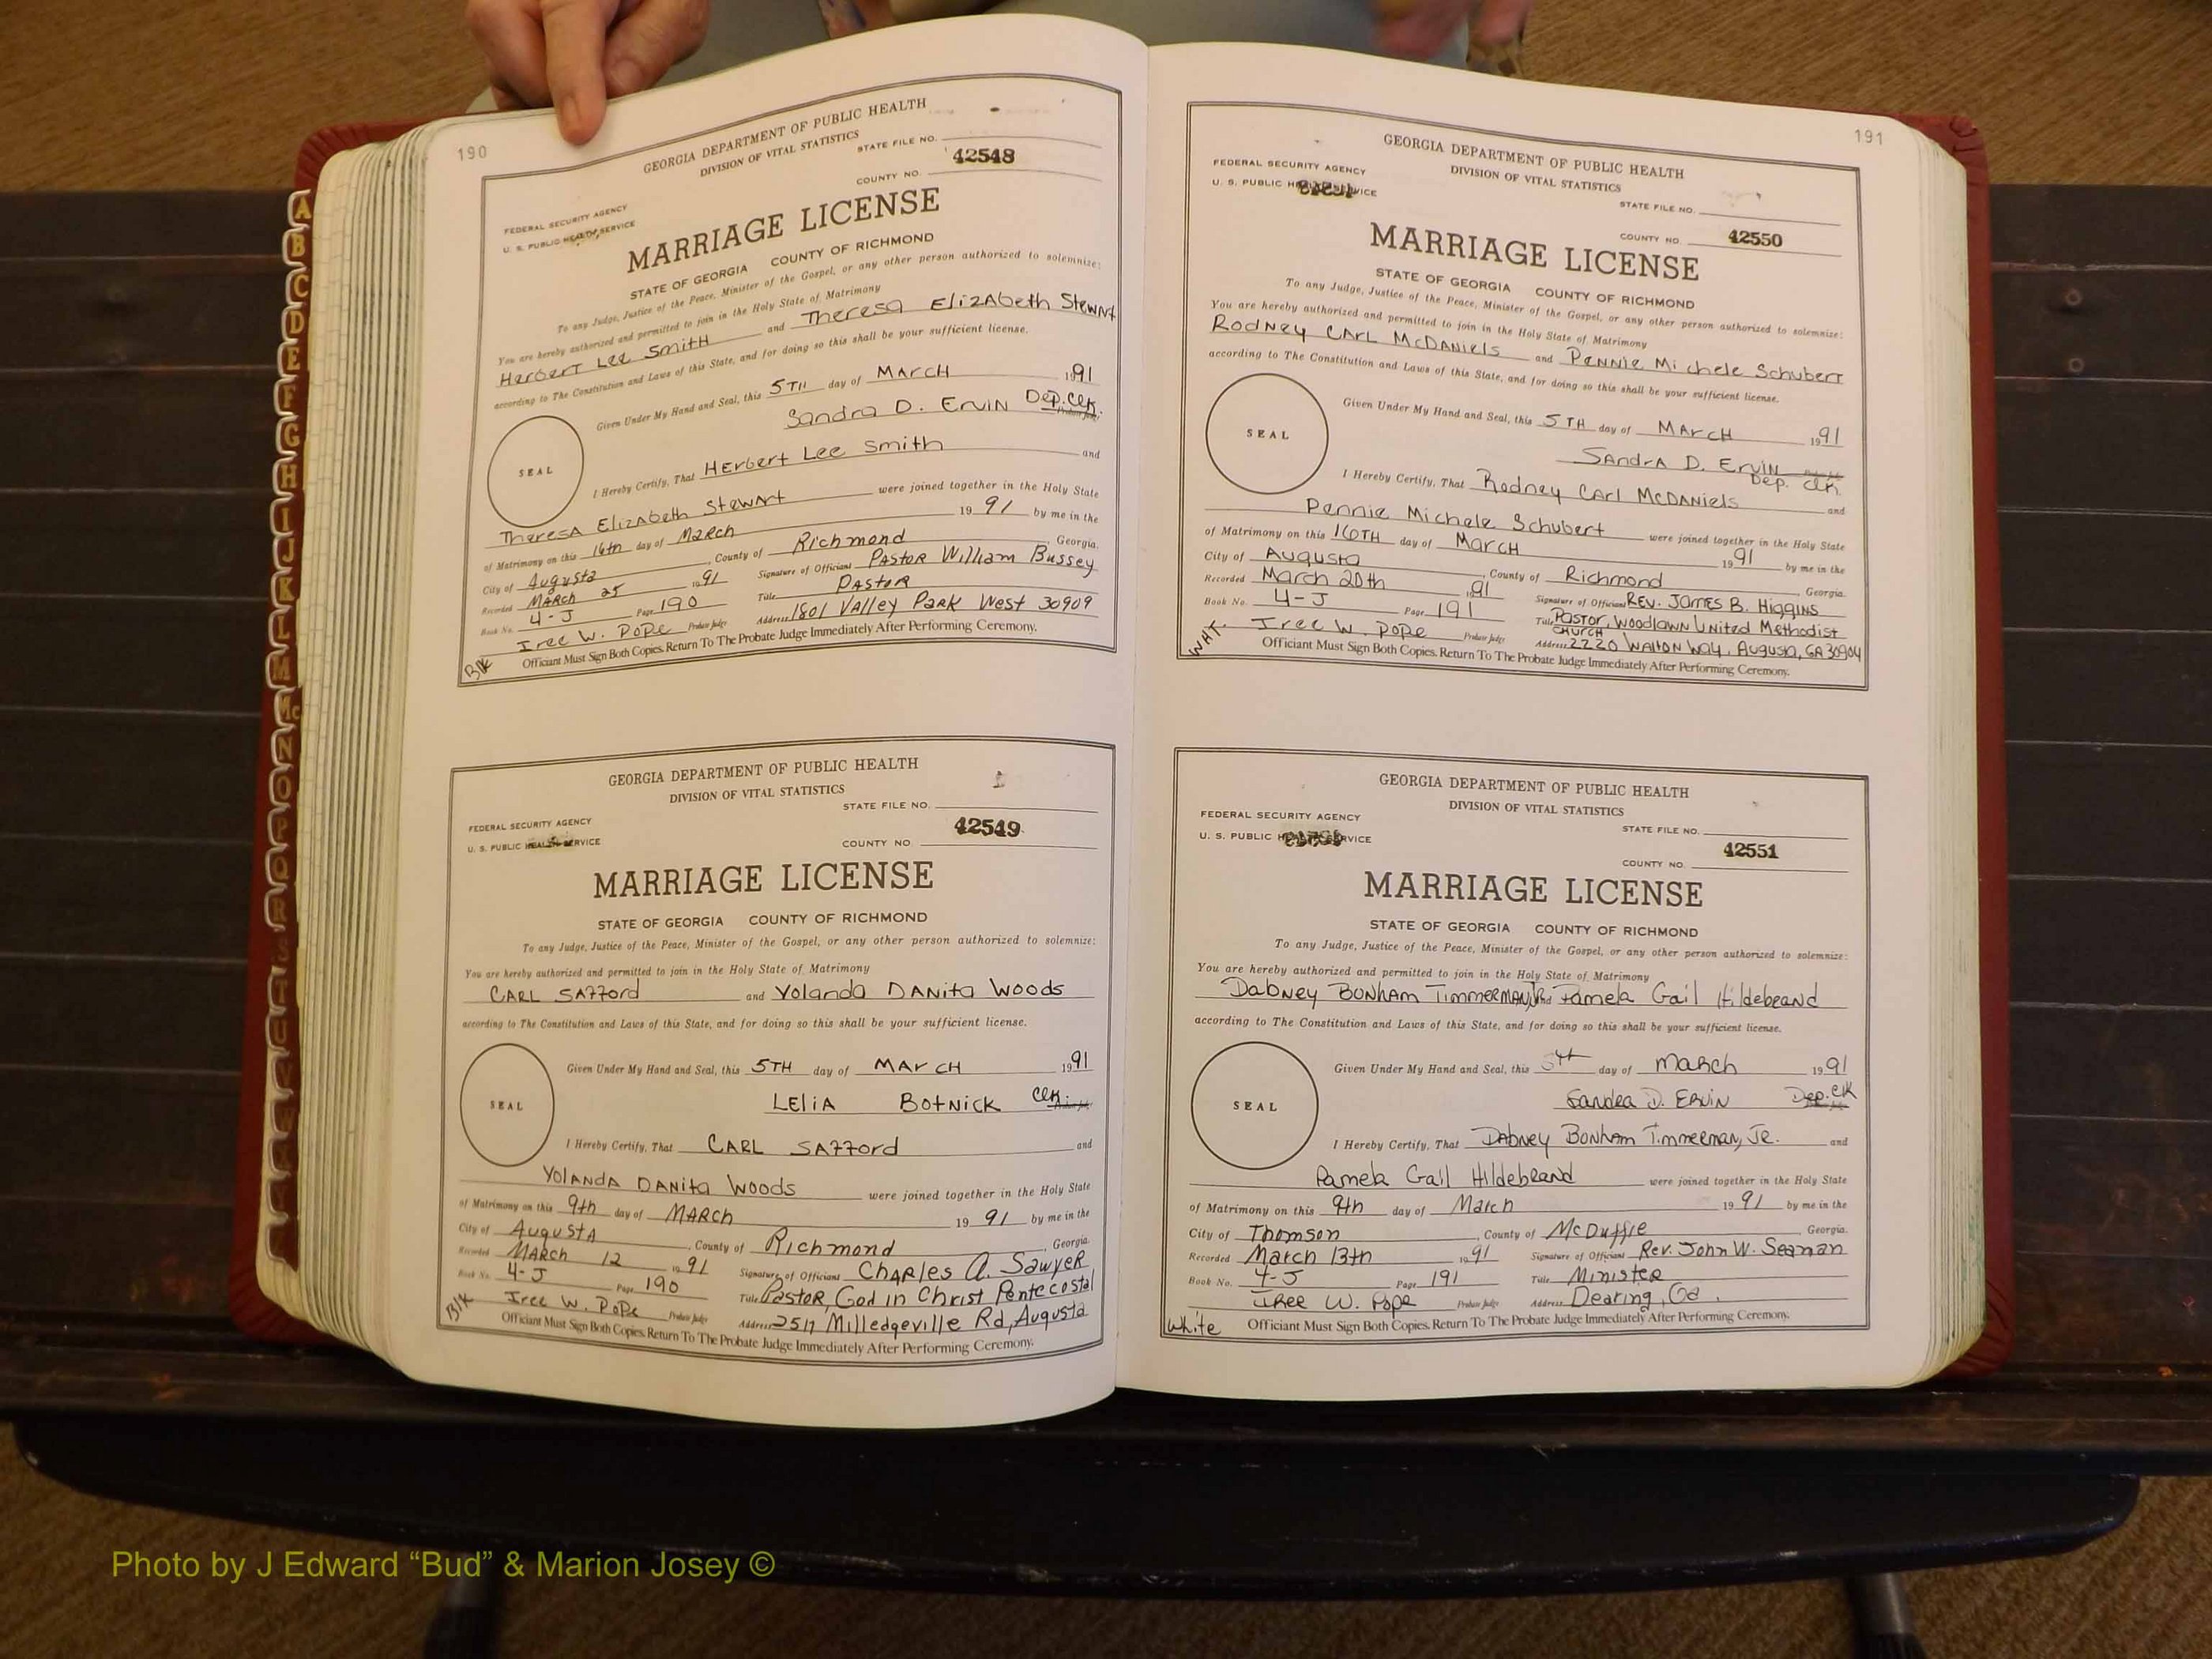 190
GEORGIA DEPARTMENT OF PUBLIC HEALTH
DIVISION OF VITAL STATISTICS
STATE FILE NO.
42548
COUNTY NO.
FEDERAL SECURITY AGENCY
U. S. PUBLIC HEALTH SERVICE
MARRIAGE LICENSE
STATE OF GEORGIA COUNTY OF RICHMOND
To any Judge, Justice of the Peace, Minister of the Gospel, or any other person authorized to solemnize:
You are hereby authorized and permitted to join in the Holy State of Matrimony
Herbert Lee Smith and Theresa Elizabeth Stewart
according to The Constitution and Laws of this State, and for doing so this shall be your sufficient license.
Given Under My Hand and Seal, this 5TH day of MARCH 1991
Sandra D. Ervin Dep. Clk.
SEAL
I Hereby Certify, That Herbert Lee Smith and
Theresa Elizabeth Stewart were joined together in the Holy State
of Matrimony on this 16th day of March 1991 by me in the
City of Augusta, County of Richmond, Georgia.
Recorded MARCH 25 1991 Signature of Officiant Pastor William Bussey
Book No. 4-J Page 190 Title PASTOR
Iree W. Pope Probate Judge Address 1801 Valley Park West 30909
Blk Officiant Must Sign Both Copies. Return To The Probate Judge Immediately After Performing Ceremony.
GEORGIA DEPARTMENT OF PUBLIC HEALTH
DIVISION OF VITAL STATISTICS
STATE FILE NO.
42549
COUNTY NO.
FEDERAL SECURITY AGENCY
U. S. PUBLIC HEALTH SERVICE
MARRIAGE LICENSE
STATE OF GEORGIA COUNTY OF RICHMOND
To any Judge, Justice of the Peace, Minister of the Gospel, or any other person authorized to solemnize:
You are hereby authorized and permitted to join in the Holy State of Matrimony
CARL Safford and Yolanda Danita Woods
according to The Constitution and Laws of this State, and for doing so this shall be your sufficient license.
Given Under My Hand and Seal, this 5TH day of MARCH 1991
LELIA BOTNICK Clk.
SEAL
I Hereby Certify, That CARL Safford and
Yolanda Danita Woods were joined together in the Holy State
of Matrimony on this 9th day of MARCH 1991 by me in the
City of Augusta, County of Richmond, Georgia.
Recorded MARCH 12 1991 Signature of Officiant Charles A. Sawyer
Book No. 4-J Page 190 Title Pastor, God in Christ Pentecostal
Iree W. Pope Probate Judge Address 2517 Milledgeville Rd, Augusta
Blk Officiant Must Sign Both Copies. Return To The Probate Judge Immediately After Performing Ceremony.
191
GEORGIA DEPARTMENT OF PUBLIC HEALTH
DIVISION OF VITAL STATISTICS
FEDERAL SECURITY AGENCY
U. S. PUBLIC HEALTH SERVICE
STATE FILE NO.
COUNTY NO. 42550
MARRIAGE LICENSE
STATE OF GEORGIA COUNTY OF RICHMOND
To any Judge, Justice of the Peace, Minister of the Gospel, or any other person authorized to solemnize:
You are hereby authorized and permitted to join in the Holy State of Matrimony
Rodney Carl McDaniels and Pennie Michele Schubert
according to The Constitution and Laws of this State, and for doing so this shall be your sufficient license.
Given Under My Hand and Seal, this 5TH day of MARCH 1991
Sandra D. Ervin
Dep. Clk.
SEAL
I Hereby Certify, That Rodney Carl McDaniels and
Pennie Michele Schubert were joined together in the Holy State
of Matrimony on this 16TH day of March 1991 by me in the
City of Augusta, County of Richmond, Georgia.
Recorded March 20th 1991 Signature of Officiant Rev. James B. Higgins
Book No. 4-J Page 191 Title Pastor, Woodlawn United Methodist Church
Iree W. Pope Probate Judge Address 2220 Walton Way, Augusta, GA 30904
WHT. Officiant Must Sign Both Copies. Return To The Probate Judge Immediately After Performing Ceremony.
GEORGIA DEPARTMENT OF PUBLIC HEALTH
DIVISION OF VITAL STATISTICS
FEDERAL SECURITY AGENCY
U. S. PUBLIC HEALTH SERVICE
STATE FILE NO.
42551
COUNTY NO.
MARRIAGE LICENSE
STATE OF GEORGIA COUNTY OF RICHMOND
To any Judge, Justice of the Peace, Minister of the Gospel, or any other person authorized to solemnize:
You are hereby authorized and permitted to join in the Holy State of Matrimony
Dabney Bonham Timmerman, Jr. and Pamela Gail Hildebrand
according to The Constitution and Laws of this State, and for doing so this shall be your sufficient license.
Given Under My Hand and Seal, this 5th day of March 1991
Sandra D. Ervin Dep. Clk
SEAL
I Hereby Certify, That Dabney Bonham Timmerman, Jr. and
Pamela Gail Hildebrand were joined together in the Holy State
of Matrimony on this 9th day of March 1991 by me in the
City of Thomson, County of McDuffie, Georgia.
Recorded March 13th 1991 Signature of Officiant Rev. John W. Seaman
Book No. 4-J Page 191 Title Minister
Iree W. Pope Probate Judge Address Dearing, Ga.
White Officiant Must Sign Both Copies. Return To The Probate Judge Immediately After Performing Ceremony.
A
B
C
D
E
F
G
H
I
J
K
L
M
Mc
N
O
P
Q
R
S
T
U
V
W
Photo by J Edward “Bud” & Marion Josey ©